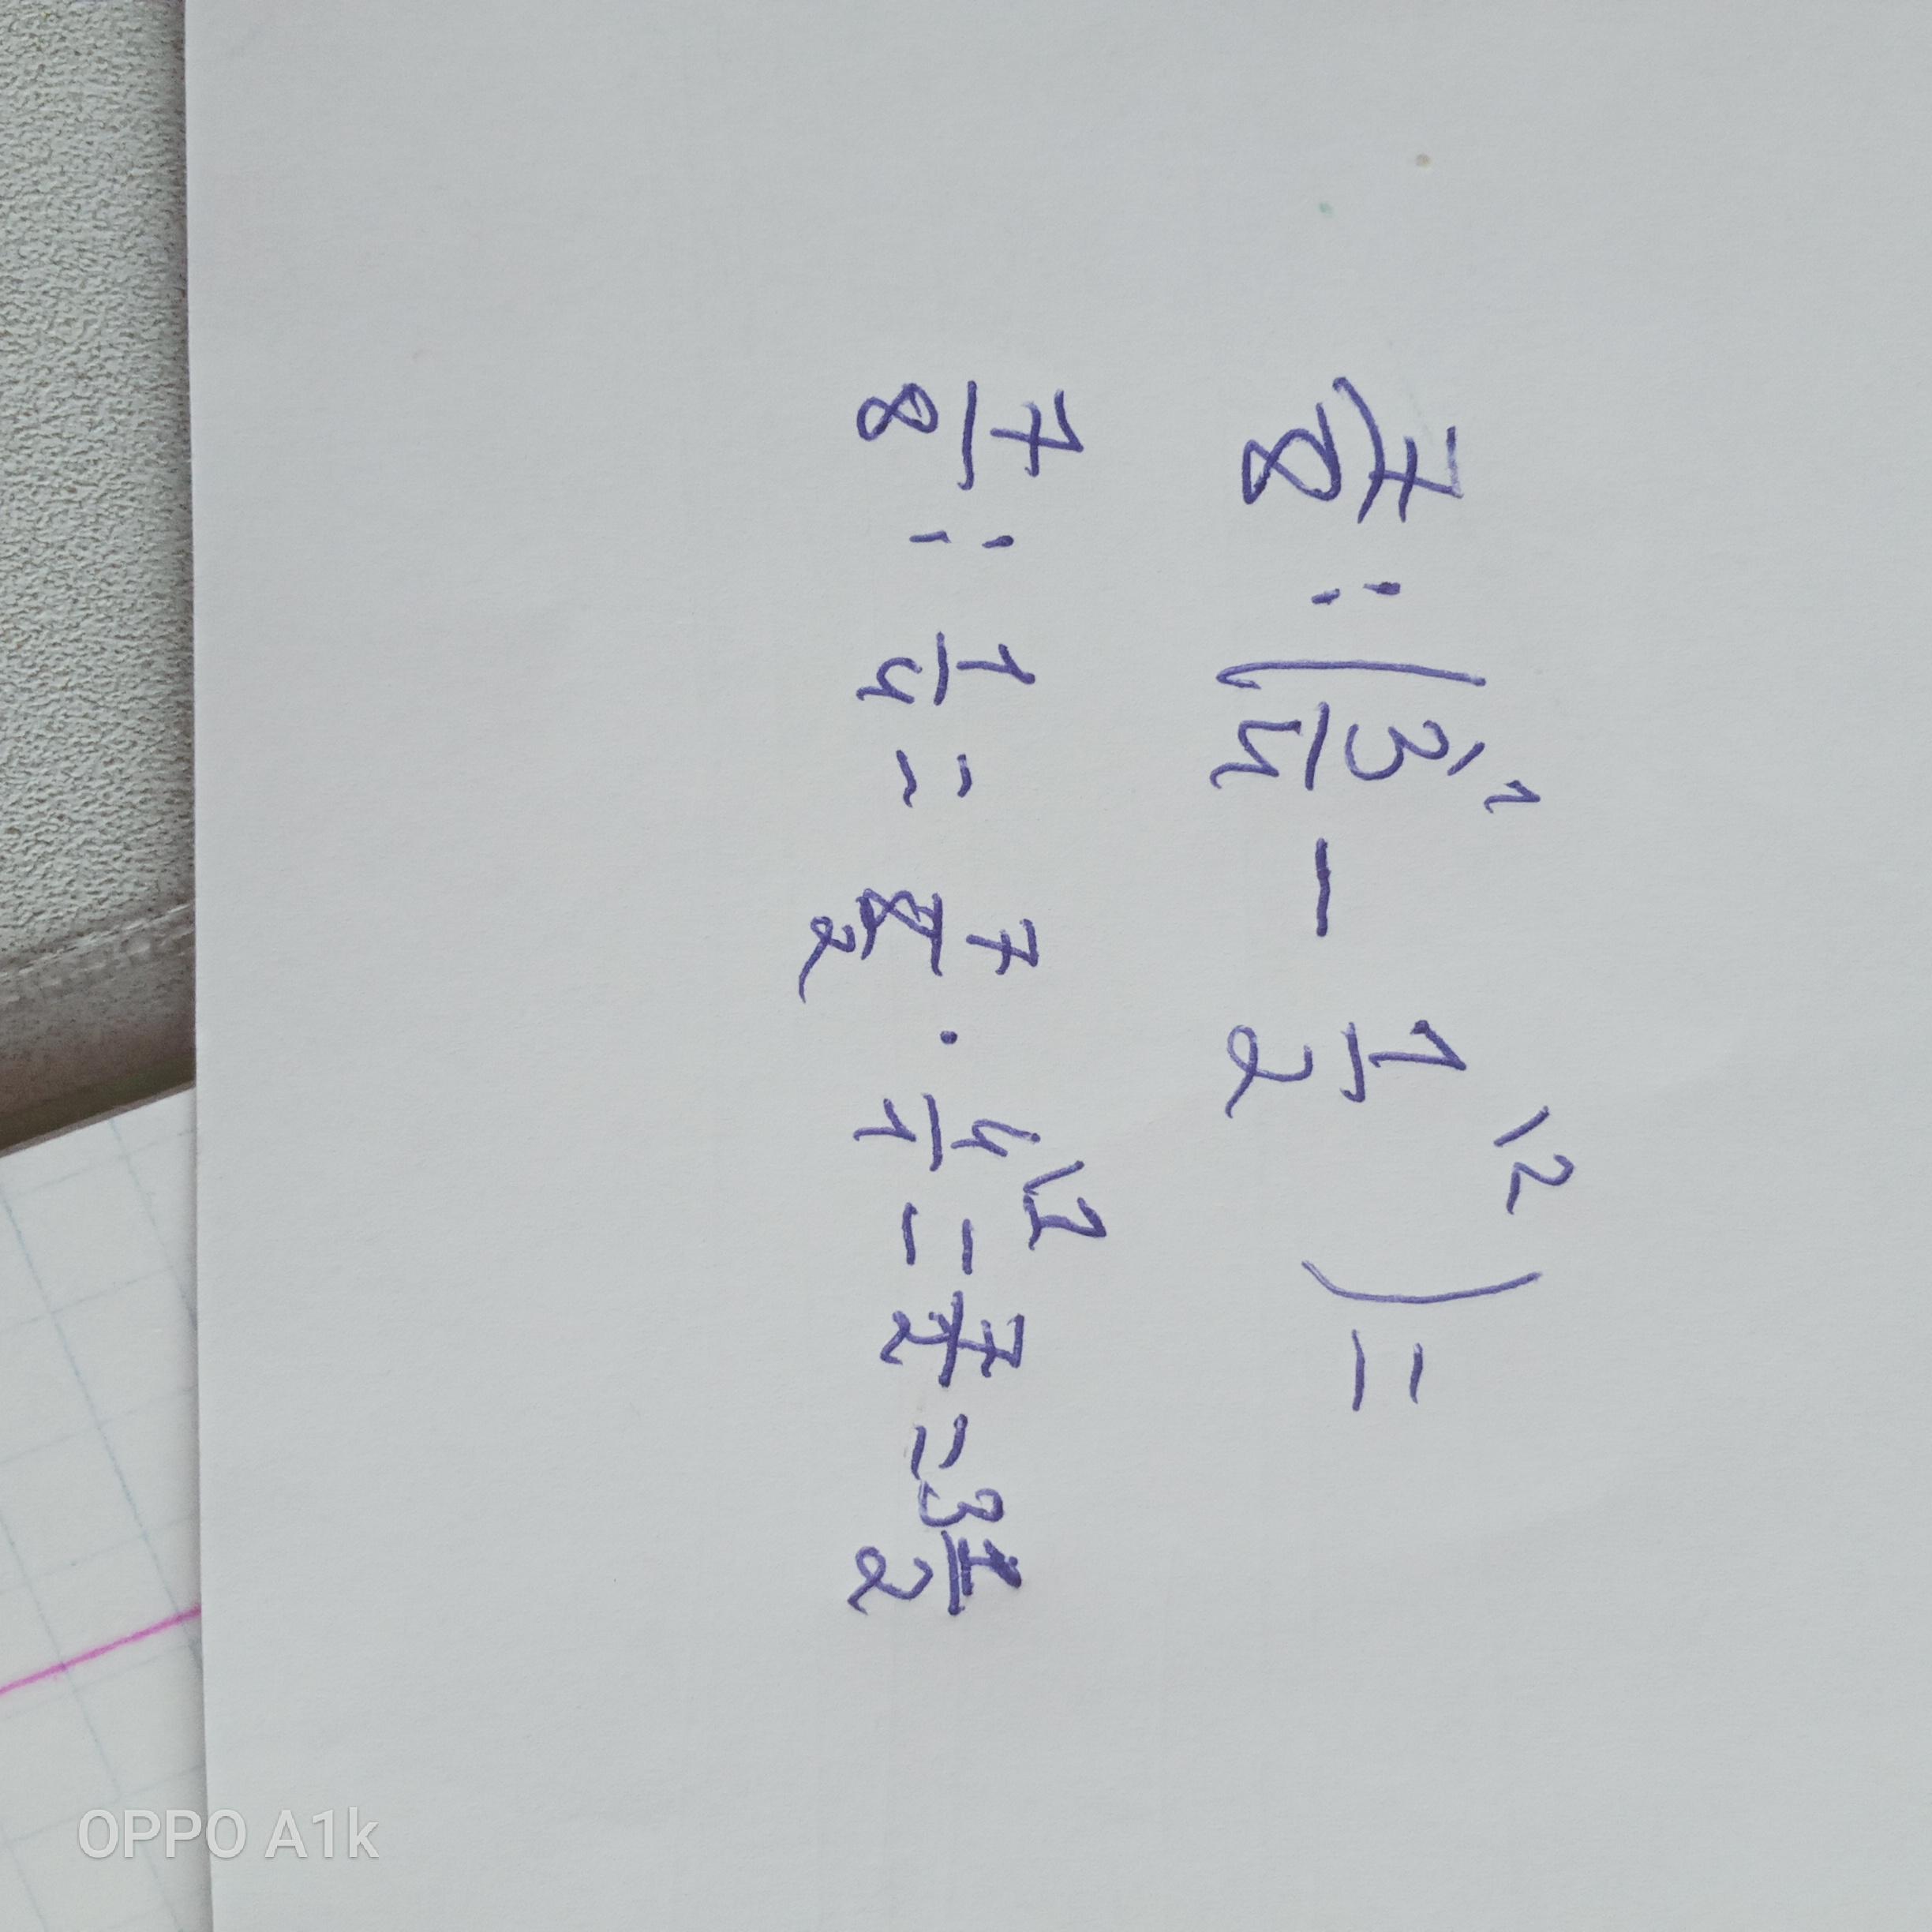 7/8 : (3/4 \1 - 1/2 \2) =
7/8 : 1/4 = 7/8 2 · 4/1 \1 = 7/2 = 3 1/2
OPPO A1k